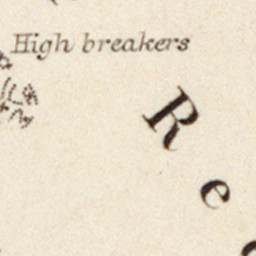 High breakers
Re